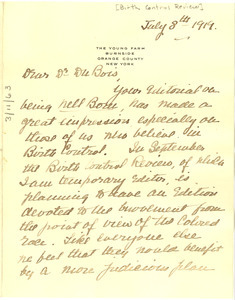 [Birth Control Review]
July 8th 1919.
THE YOUNG FARM
BURNSIDE
ORANGE COUNTY
NEW YORK
3/11/63
Dear Dr DuBois,
Your Editorial on
being Well Born, has made a
great impression especially on
those of us who believe in
Birth Control. In September
the Birth Control Review, of which
I am temporary Editor, is
planning to have an Edition
devoted to the movement from
the point of view of the Colored
race. Like everyone else
we feel that they would benefit
by a more judicious plan